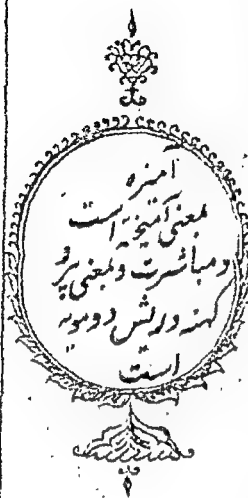 آمیزه
بمعنی آمیخته است
و مباشرت و بمعنی پیر و
کهنه و ریش دومویه
است